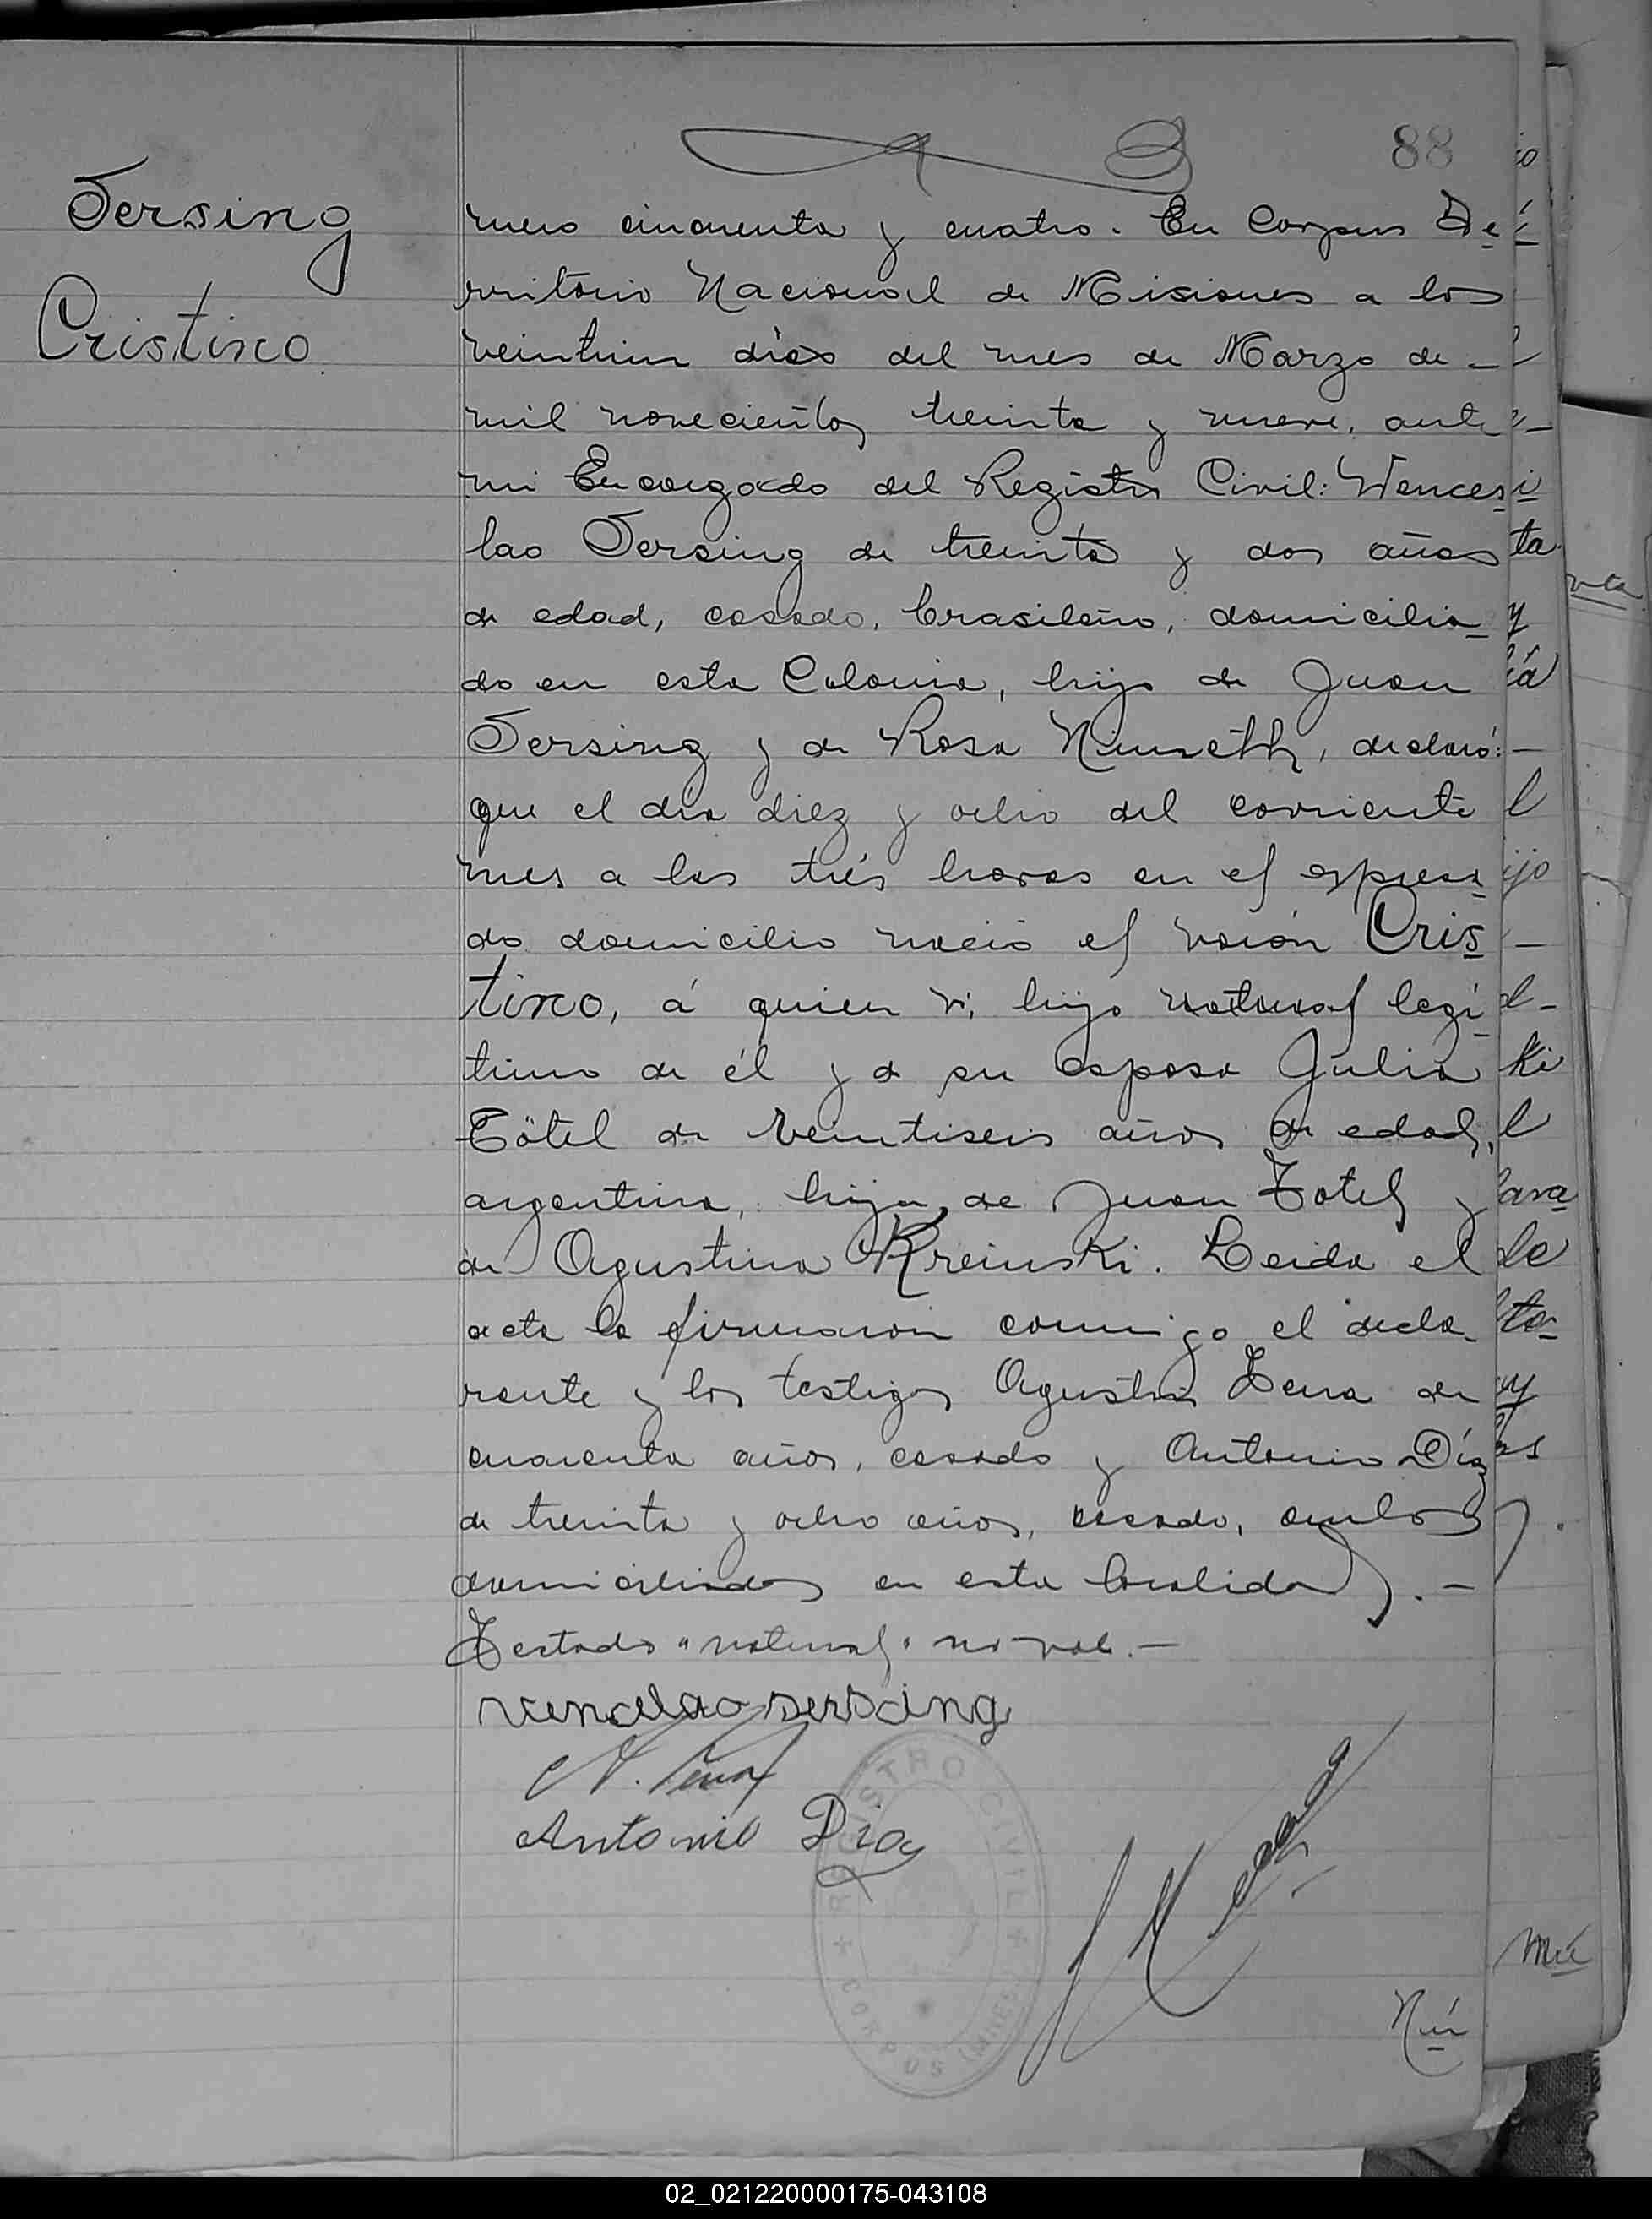 88
Sersing
Cristino
mero cincuenta y cuatro. En Corpus Te
rritorio Nacional de Misiones a los
veintiun días del mes de Marzo de —
mil novecientos treinta y nueve, ante
mi Encargado del Registro Civil: Wences
lao Sersing de treinta y dos años
de edad, casado, brasileño, domicilia
do en esta Colonia, hijo de Juan
Sersing y de Rosa Nimseth, declaró:
que el día diez y ocho del corriente
mes a las trés horas en el espresa
do domicilio nació el varón Cris
tino, á quien vi, hijo natural legí
timo de él y d su esposa Julia
Tötel de veintiseis años de edad,
argentina, hija de Juan Totel y
de Agustina Kreinski. Leida el
acta la firmaron conmigo el decla-
rante y los testigos Agustin Pena de
cuarenta años, casado y Antonio Díaz
de treinta y ocho años, casado, ambos
domiciliados en esta localidad. —
Testado "natural" no vale. —
wenceslao sersing
A. Pena
Antonio Diaz
REGISTRO CIVIL
CORPUS (MNES)
Nú
02_021220000175-043108